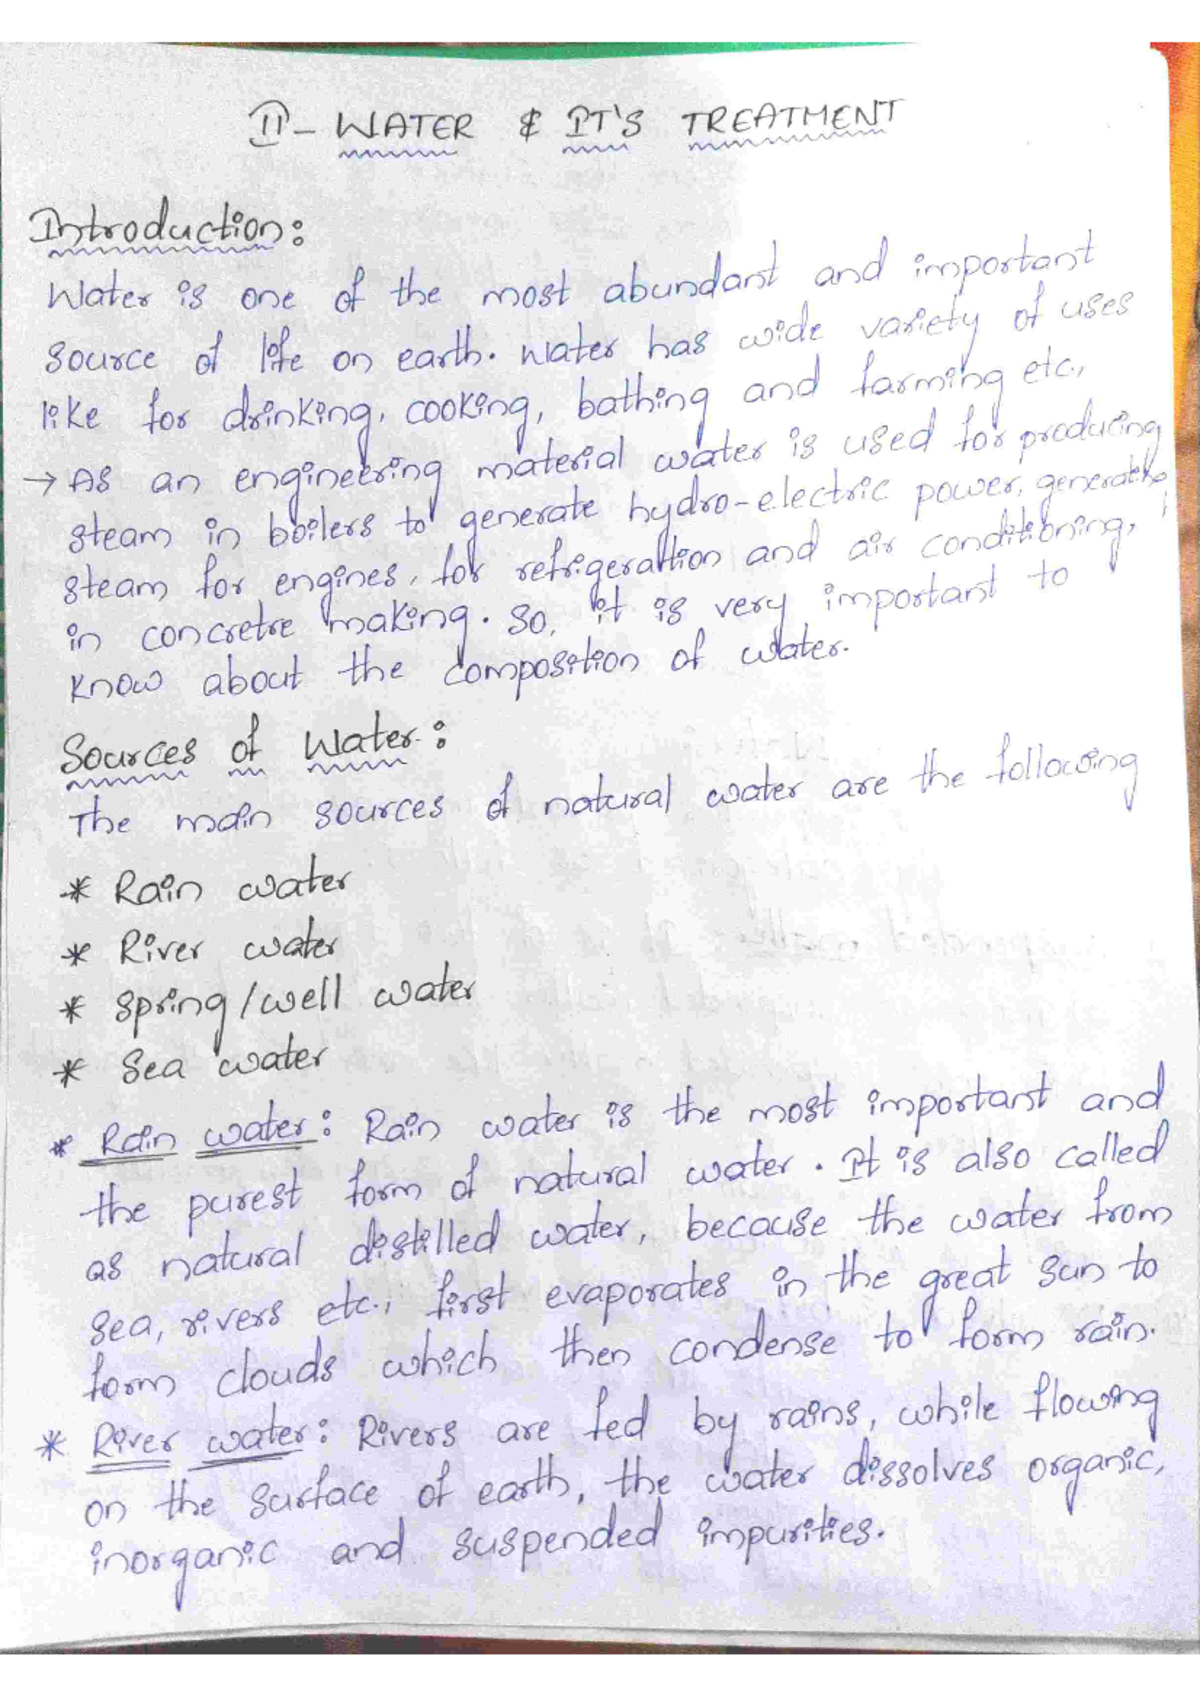 II - WATER & IT'S TREATMENT
Introduction:
Water is one of the most abundant and important
source of life on earth. Water has wide variety of uses
like for drinking, cooking, bathing and farming etc.,
→ As an engineering material water is used for producing
steam in boilers to generate hydro-electric power, generating
steam for engines, for refrigerattion and air conditioning,
in concretre making. So, it is very important to
know about the composition of water.
Sources of Water:
The main sources of natural water are the following
* Rain water
* River water
* Spring/well water
* Sea water
* Rain water: Rain water is the most important and
the purest form of natural water. It is also called
as natural distilled water, because the water from
sea, rivers etc.; first evaporates in the great sun to
form clouds which then condense to form rain.
* River water: Rivers are fed by rains, while flowing
on the surface of earth, the water dissolves organic,
inorganic and suspended impurities.